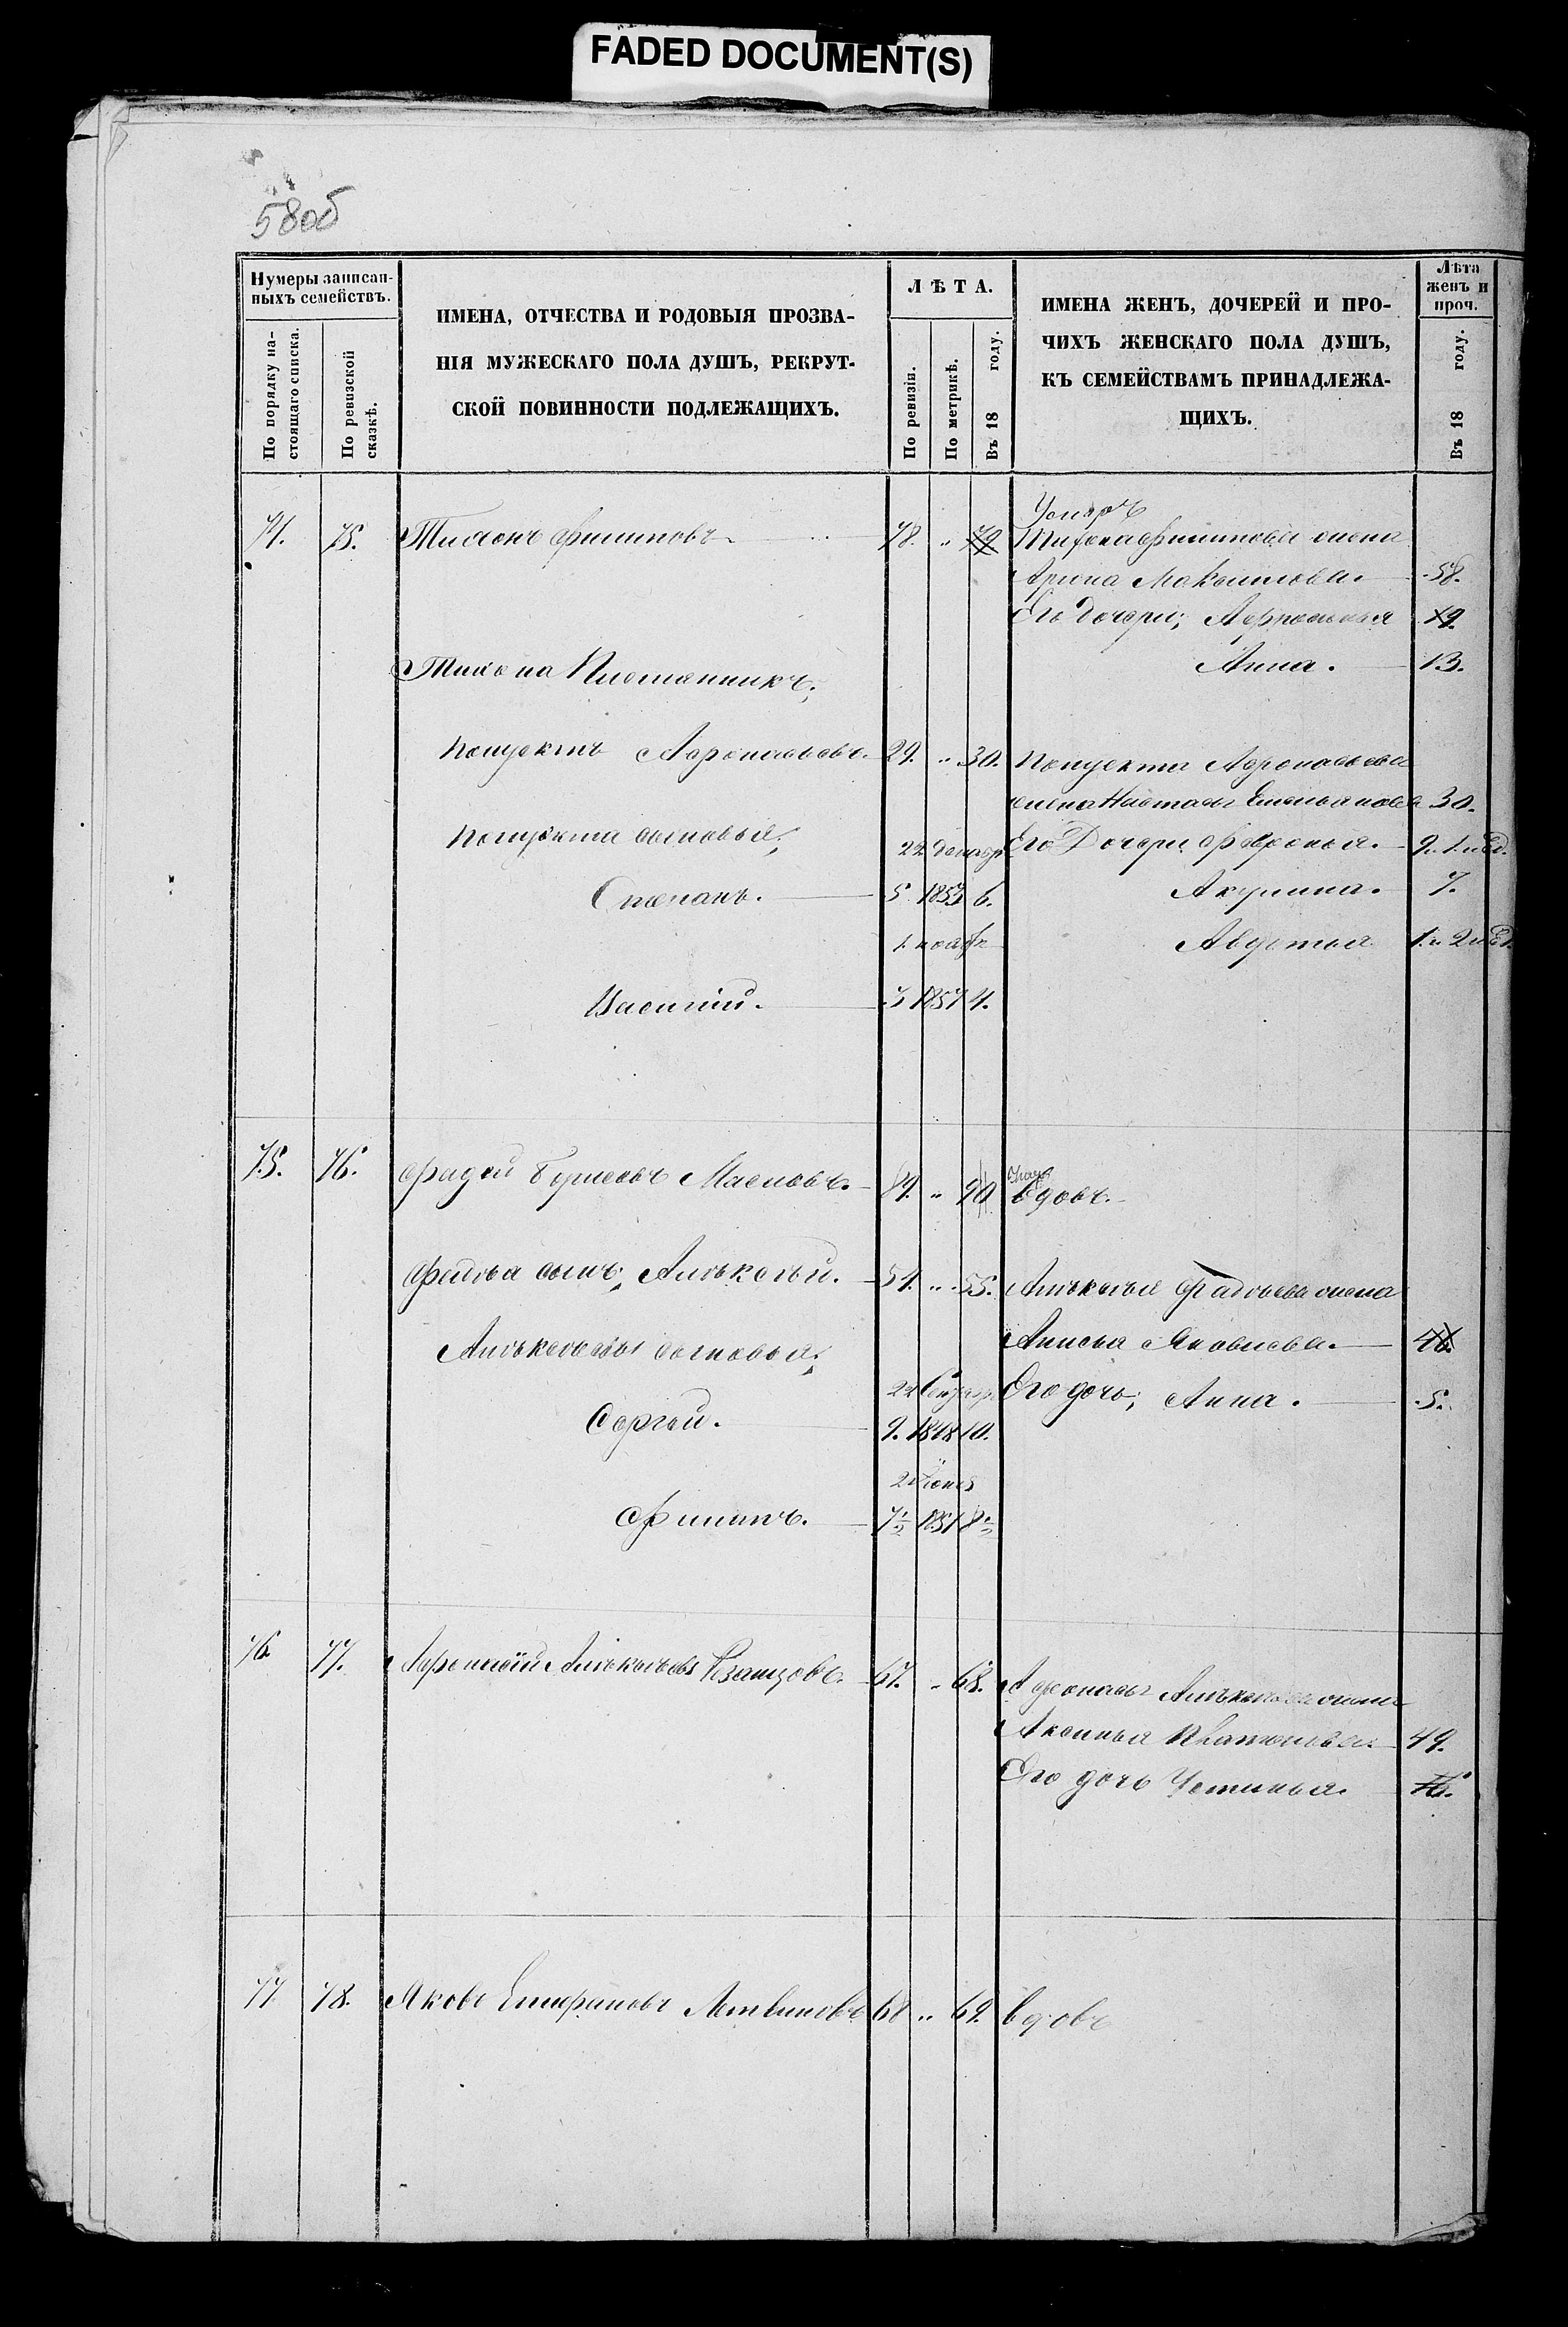 FADED DOCUMENT(S)
58об
Нумеры записан-
ныхъ семействъ.
По порядку на-
стоящаго списка.
По ревизской
сказкѣ.
ИМЕНА, ОТЧЕСТВА И РОДОВЫЯ ПРОЗВА-
НІЯ МУЖЕСКАГО ПОЛА ДУШЪ, РЕКРУТ-
СКОЙ ПОВИННОСТИ ПОДЛЕЖАЩИХЪ.
ЛѢТА.
По ревизіи.
По метрикѣ.
Въ 18 году.
ИМЕНА ЖЕНЪ, ДОЧЕРЕЙ И ПРО-
ЧИХЪ ЖЕНСКАГО ПОЛА ДУШЪ,
КЪ СЕМЕЙСТВАМЪ ПРИНАДЛЕЖА-
ЩИХЪ.
Лѣта
женъ и
проч.
Въ 18 году.
Умеръ
74. 75. Тихонъ Филиповъ 78. „ 79 Тихона Филипова жена
Арина Максимова. 58.
Его дочери; Афросинья 19.
Анна. 13.
Тихона Племянникъ;
Полуектъ Афонасьевъ. 29. „ 30. Полуекта Афонасьева
жена Настасья Емельянова 30.
Полуекта сыновья; 22 декабр Его Дочери Феврония. 9.
Степанъ. 5 1853 6. Акулина. 7.
1. ноабр Авдотья
Василий. 3 1857 4.
75. 76. Фадей Масловъ. 89. „ 90 вдовъ.
Фадея сынъ, Алексей. 54. „ 55. Алексея Фадеева жена
Анисья Яковлева. 46.
Алексея сыновья;
22 Его дочь; Анна. 5.
Сергей. 9. 1848 10.
Филипъ. 7½ 1851 8½
76. 77. Афонасий Алексеевъ 67. „ 68. Афонасья Алексеева жена
Аксинья 49.
Его дочь Устинья.
77 78. Яковъ Епифановъ Литвиновъ 68 „ 69. вдовъ